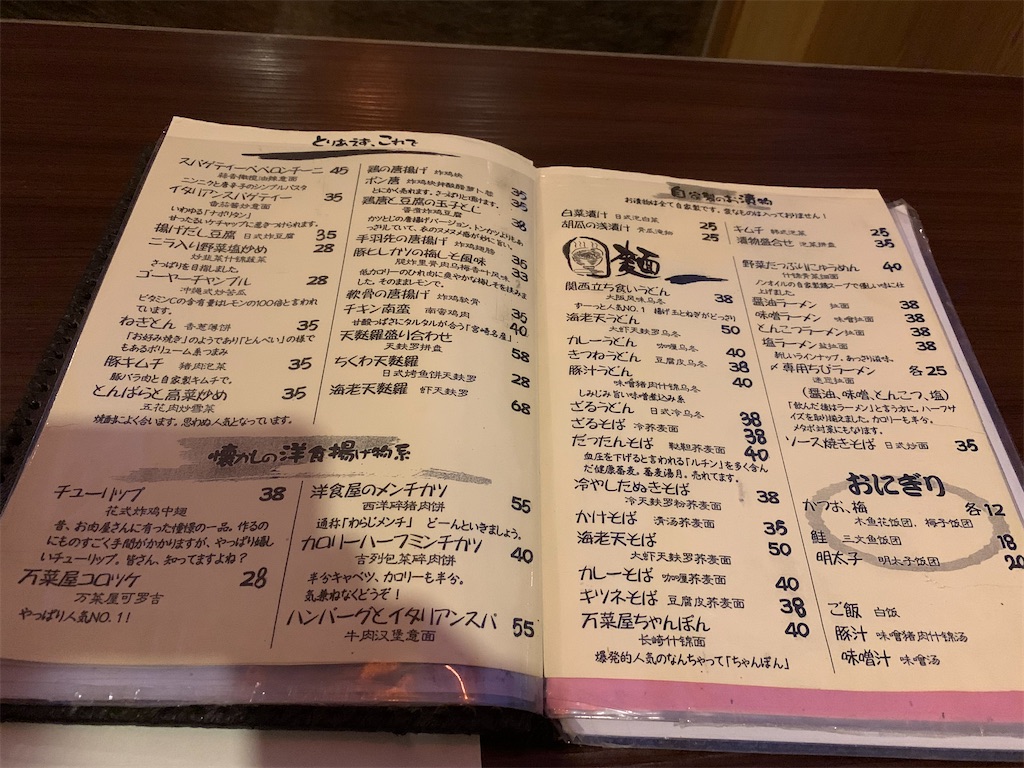 とりあえず、これで
スパゲティーペペロンチーニ 45
蒜香橄榄油辣意面
ニンニクと唐辛子のシンプルパスタ
イタリアンスパゲティー 35
番茄酱炒意面
いわゆる「ナポリタン」
甘ったるいケチャップに惹きつけられます。
揚げだし豆腐 日式炸豆腐 35
ニラ入り野菜塩炒め 28
炒韭菜什锦蔬菜
さっぱりを目指しました。
ゴーヤーチャンプル 28
沖縄式炒苦瓜
ビタミンCの含有量はレモンの100倍と言われ
ています。
ねぎとん 香葱薄饼 35
「お好み焼き」のようであり「とんぺい」の様で
もあるボリューム票つまみ
豚キムチ 猪肉泡菜 35
豚バラ肉と自家製キムチで。
とんばらと高菜炒め 35
五花肉炒雪菜
焼酎によく合います。思わぬ人気となっています。
鶏の唐揚げ 炸鸡块 35
ポン唐 炸鸡块拌酸醋萝卜蓉 35
とにかく売れます。さっぱりと頂けます。
鶏唐と豆腐の玉子とじ 35
香煮炸鸡豆腐
カツとじの唐揚げバージョン。トンカツよりもあ
っさりしていて、私のススメメ感が妙に旨い。
手羽先の唐揚げ 炸鸡翅膀 35
豚としかソの梅しそ風味 33
腿炸里脊肉乌梅香叶风味
低カロリーのひれ肉に爽やかな梅しそを挟みま
した。そのままレモンで。
軟骨の唐揚げ 炸鸡软骨 35
チキン南蛮 南蛮鸡肉 40
甘酸っぱさにタルタルが合う「宮崎名産」
天麩羅盛り合わせ 58
天麸罗拼盘
ちくわ天麩羅 28
日式烤鱼饼天麸罗
海老天麩羅 虾天麸罗 68
懐かしの洋食揚げ物系
チューリップ 38
花式炸鸡中翅
昔、お肉屋さんに有った憧憬の一品。作るの
にものすごく手間がかかりますが、やっぱり嬉し
いチューリップ。皆さん、知ってますよね?
万菜屋コロッケ 28
万菜屋可罗吉
やっぱり人気NO.1!
洋食屋のメンチカツ 55
西洋碎猪肉饼
通称「わらじメンチ」 どーんといきましょう。
カロリーハーフミンチカツ 40
吉列包菜碎肉饼
半分キャベツ、カロリーも半分。
気兼ねなくどうぞ!
ハンバーグとイタリアンスパ 55
牛肉汉堡意面
自家製のお漬物
お漬物は全て自家製です。変なものは入っておりません!
白菜漬け 日式泡白菜 25
胡瓜の浅漬け 黄瓜淹物 25
キムチ 韩式泡菜 25
漬物盛合せ 泡菜拼盘 35
麺
関西立ち食いうどん 38
大阪风味乌冬
ずーっと人気NO.1 揚げ玉とねぎがどっさり
海老天うどん 50
大虾天麸罗乌冬
カレーうどん 咖喱乌冬 40
きつねうどん 豆腐皮乌冬 38
豚汁うどん 40
味噌猪肉什锦乌冬
しみじみ旨い味噌煮込み系
ざるうどん 日式冷乌冬 38
ざるそば 冷荞麦面 38
だったんそば 鞑靼荞麦面 40
血圧を下げると言われる「ルチン」を多く含ん
だ健康蕎麦。蕎麦湯月。売れてます。
冷やしたぬきそば 38
冷天麸罗粉荞麦面
かけそば 清汤荞麦面 35
海老天そば 50
大虾天麸罗荞麦面
カレーそば 咖喱荞麦面 40
キツネそば 豆腐皮荞麦面 38
万菜屋ちゃんぽん 40
长崎什锦面
爆発的人気のなんちゃって「ちゃんぽん」
野菜たっぷりにゅうめん 40
什锦青菜细面
ノンオイルの自家製鶏スープで優しい味に仕
上げました。
醤油ラーメン 拉面 38
味噌ラーメン 味噌拉面 38
とんこつラーメン 拉面 38
塩ラーメン 盐拉面 38
新しいラインナップ。あっさり滋味。
〆専用ちびラーメン 各25
迷您拉面
(醤油、味噌、とんこつ、塩)
「飲んだ後はラーメン」と言う方に。ハーフサ
イズを取り揃えました。カロリーも半分。
メタボ対策にもなります。
ソース焼きそば 日式炒面 35
おにぎり
かつお、梅 各12
木鱼花饭团,梅子饭团
鮭 三文鱼饭团 18
明太子 明太子饭团 20
ご飯 白饭
豚汁 味噌猪肉什锦汤
味噌汁 味噌汤